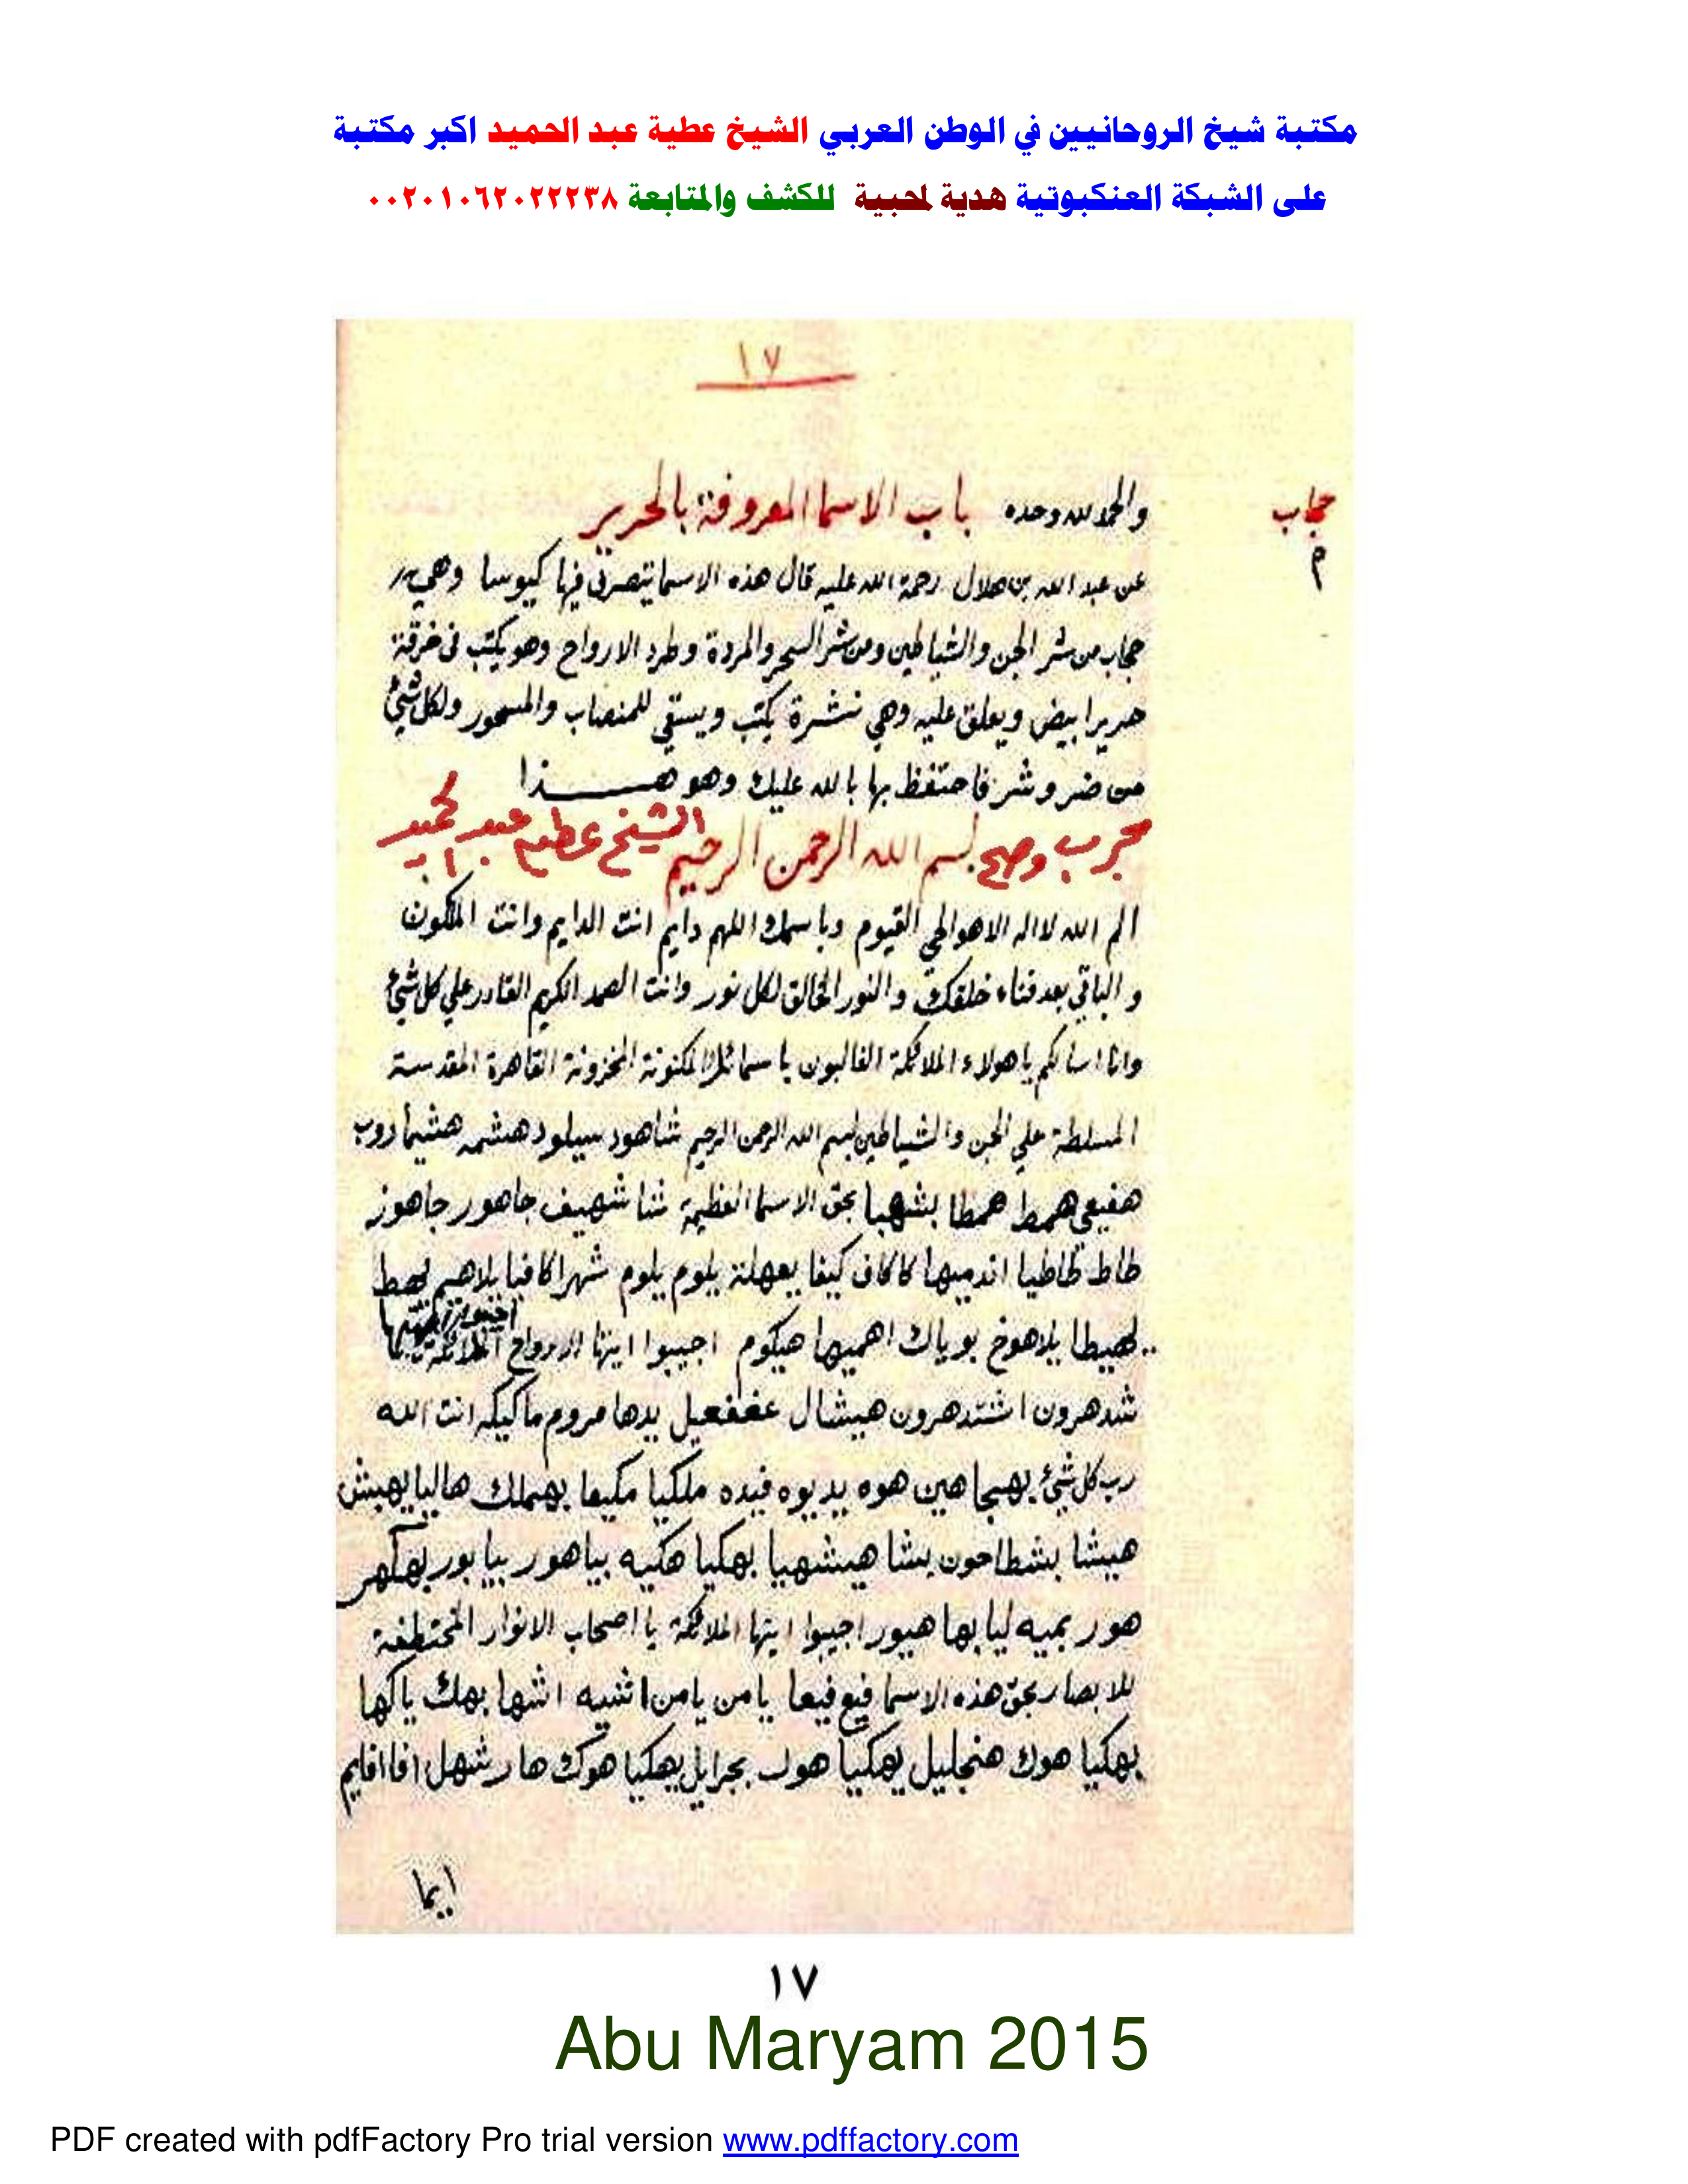 مكتبة شيخ الروحانيين في الوطن العربي الشيخ عطية عبد الحميد اكبر مكتبة
على الشبكة العنكبوتية هدية لمحبية للكشف والمتابعة ٠٠٢٠١٠٦٢٠٢٢٢٣٨
١٧
والحمد لله وحده باب الاسما المعروفة بالحرير
حجاب
عن عبد الله بن هلال رحمة الله عليه قال هذه الاسما يتصرف فيها كيوسا وهي
حجاب من شر الجن والشياطين ومن شر السحر والمردة وطرد الارواح وهو يكتب في خرقة
حرير ابيض ويعلق عليه وهي نشرة يكتب ويسقي للمنصاب والمسحور ولكل شئ
من ضر وشر فاحتفظ بها بالله عليك وهو هـــذا
مجرب وصح بسم الله الرحمن الرحيم الشيخ عطيه عبد الحميد
الم الله لا اله الا هو الحي القيوم وباسمك اللهم دايم انت الدايم وانت المكون
و الباقي بعد فناء خلقك والنور الخالق لكل نور وانت الصمد الكريم القادر علي كل شئ
وانا اسالكم يا هولاء الملائكة الغالبون باسمائك المكنونة المخزونة القاهرة المقدسة
المسلطة علي الجن والشياطين بسم الله الرحمن الرحيم شاهود سيلود هشمه هشيما روب
هفيعي همط همطا بشهبا بحق الاسما العظيمة شا شهيف جاهور جاهوز
طاط طاطيا اندميها كاكاف كيفا يعهلة يلوم يلوم شهرا كافيا يلاهيم لهيط
لهيطا يلاهوخ بوياك اهميها هيكوم اجيبوا ايتها الارواح
شدهرون اشتدهرون هيشال عغفعيل يدها مروم ماكيكه انت الله
رب كل شئ بهيجا هين هوه يديوه فيده ملكيا مكيعا بهملك هاليا يهيش
هيشا بشطاحون بشا هيشهيا بهكيا هكيه بياهور بيابور بهكهر
هور بميه ليا بها هيور اجيبوا ايتها الملائكة يا اصحاب الانوار المختطفة
للابصار بحق هذه الاسما فيع فيعا يا من يا من اشيه اشها بهك ياكها
بهكيا هوك هنجليل يهكيا هوك بجرايل يهكيا هوك هارشهل افا اقايم
ايما
١٧
Abu Maryam 2015
PDF created with pdfFactory Pro trial version www.pdffactory.com